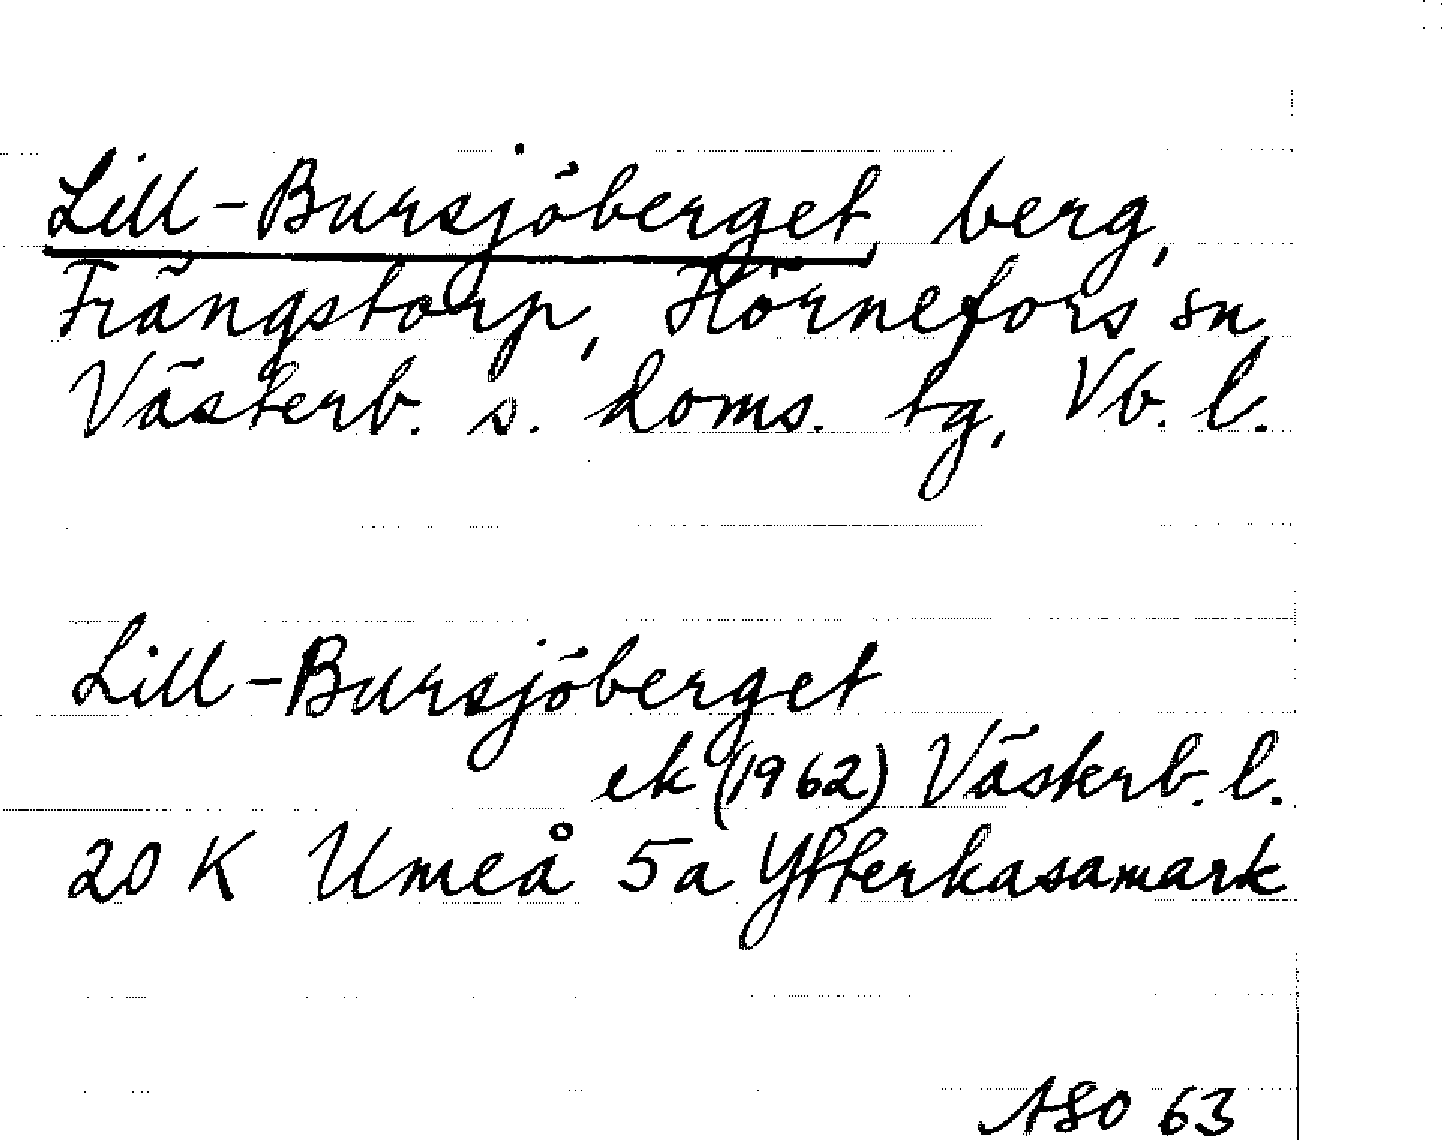 Lill-Bursjöberget, berg,
Frängstorp, Hörnefors sn,
Västerb. s. doms. tg, Vb. l.
Lill-Bursjöberget
ek (1962) Västerb. l.
20 K Umeå 5a Ytterkasamark
ASO 63